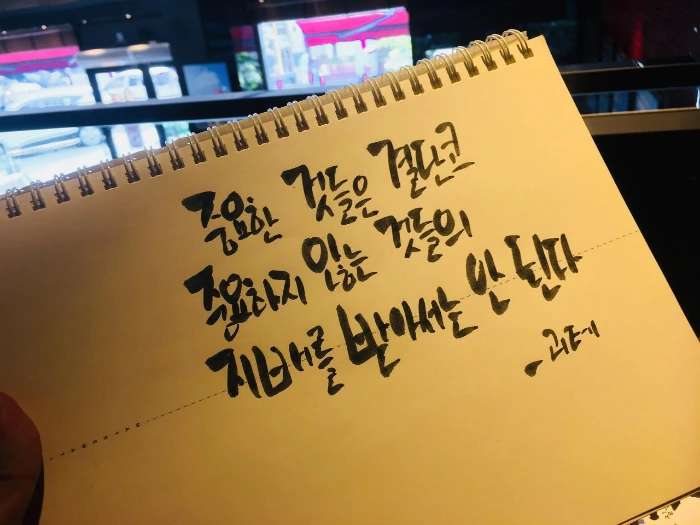 중요한 것들은 결단코
중요하지 않는 것들의
지배를 받아서는 안 된다
괴테